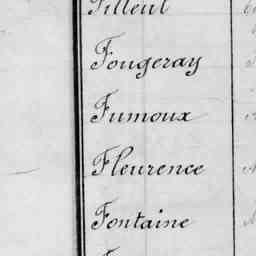 Tilleul
Fougeray
Fumoux
Fleurence
Fontaine